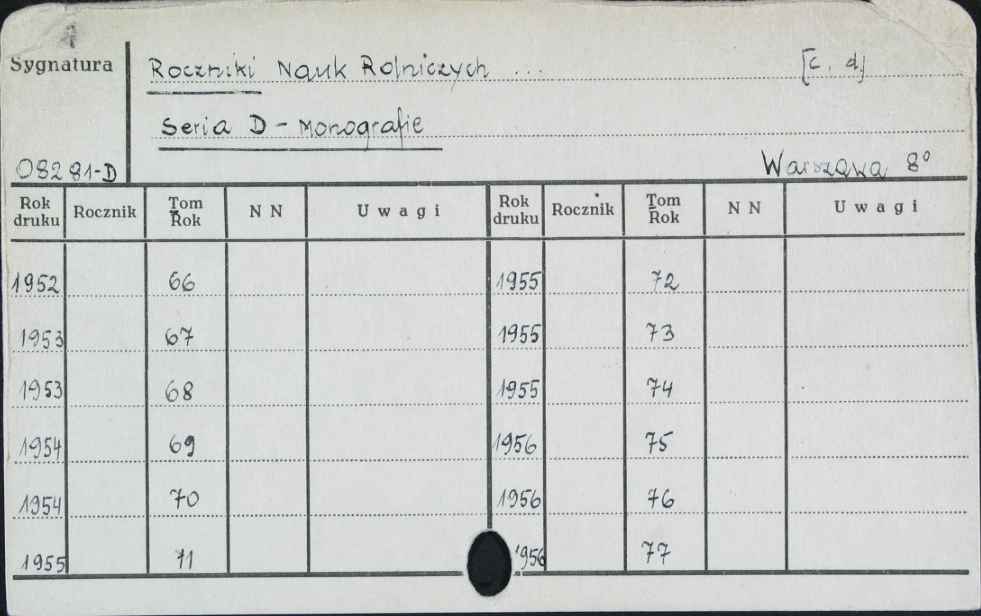 Sygnatura
Roczniki Nauk Rolniczych ... [c. d]
Seria D - Monografie
08281-D
Warszawa 8°
Rok druku Rocznik Tom Rok N N Uwagi Rok druku Rocznik Tom Rok N N Uwagi
1952 66 1955 72
1953 67 1955 73
1953 68 1955 74
1954 69 1956 75
1954 70 1956 76
1955 71 1956 77